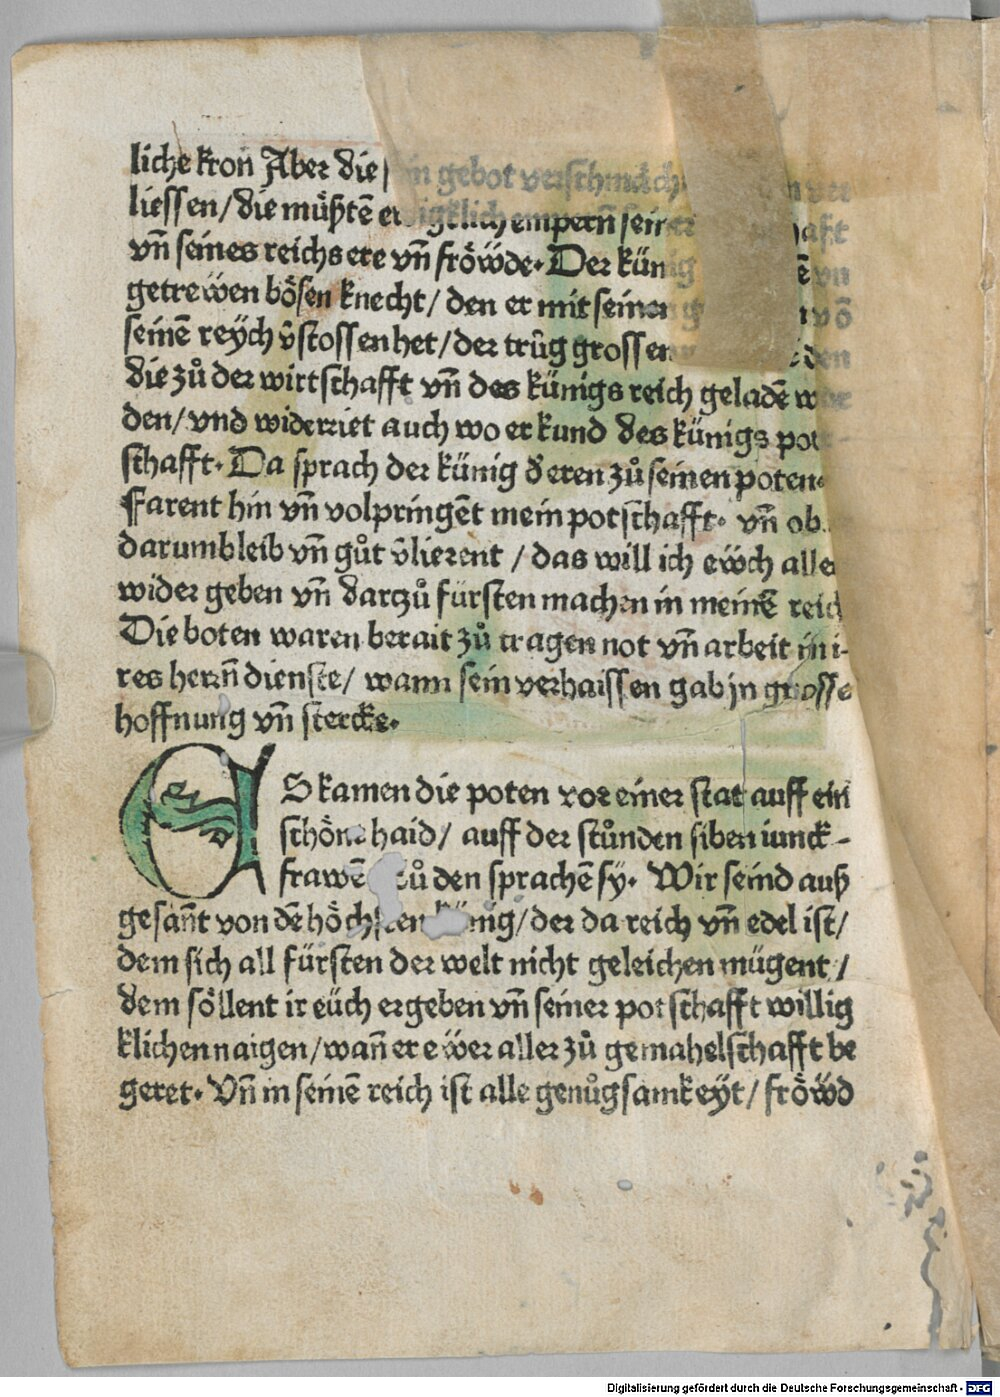 liche kron Aber die in gebot verschmäch
liessen/die müßtē ewigklich empern seiner schafft
vn̄ seines reichs ere vn̄ frö̈wde. Der künig
getrewen bösen knecht/ den er mit seinen vō
seinē reych v̄stossen het/der trůg grossen den
die zů der wirtschafft vn̄ des künigs reich geladē wor
den/vnd widerriet auch wo er kund des künigs pot-
schafft. Da sprach der künig deren zů seinen poten.
Farent hin vn̄ volpringēt mein potschafft. vn̄ ob
darumb leib vn̄ gůt v̄lierent / das will ich eẅch alles
wider geben vn̄ darzů fürsten machen in meinē reich
Die boten waren berait zů tragen not vn̄ arbeit in i-
res herrn̄ dienste/ wann sein verhaissen gab jn grosse
hoffnung vn̄ stercke.
ES kamen die poten vor einer stat auff ein
schöne haid/ auff der stůnden siben iunck-
frawē zů den sprachē sy. Wir seind auß
gesān̄t von dē höchsten künig/der da reich vn̄ edel ist/
dem sich all fürsten der welt nicht geleichen mügent/
dem söllent ir eüch ergeben vn̄ seiner potschafft willig
klichen naigen/wan̄ er eẅer aller zů gemahelschafft be
geret. Vn̄ in seinē reich ist alle genůgsamkeyt/ fröẅd
Digitalisierung gefördert durch die Deutsche Forschungsgemeinschaft - DFG